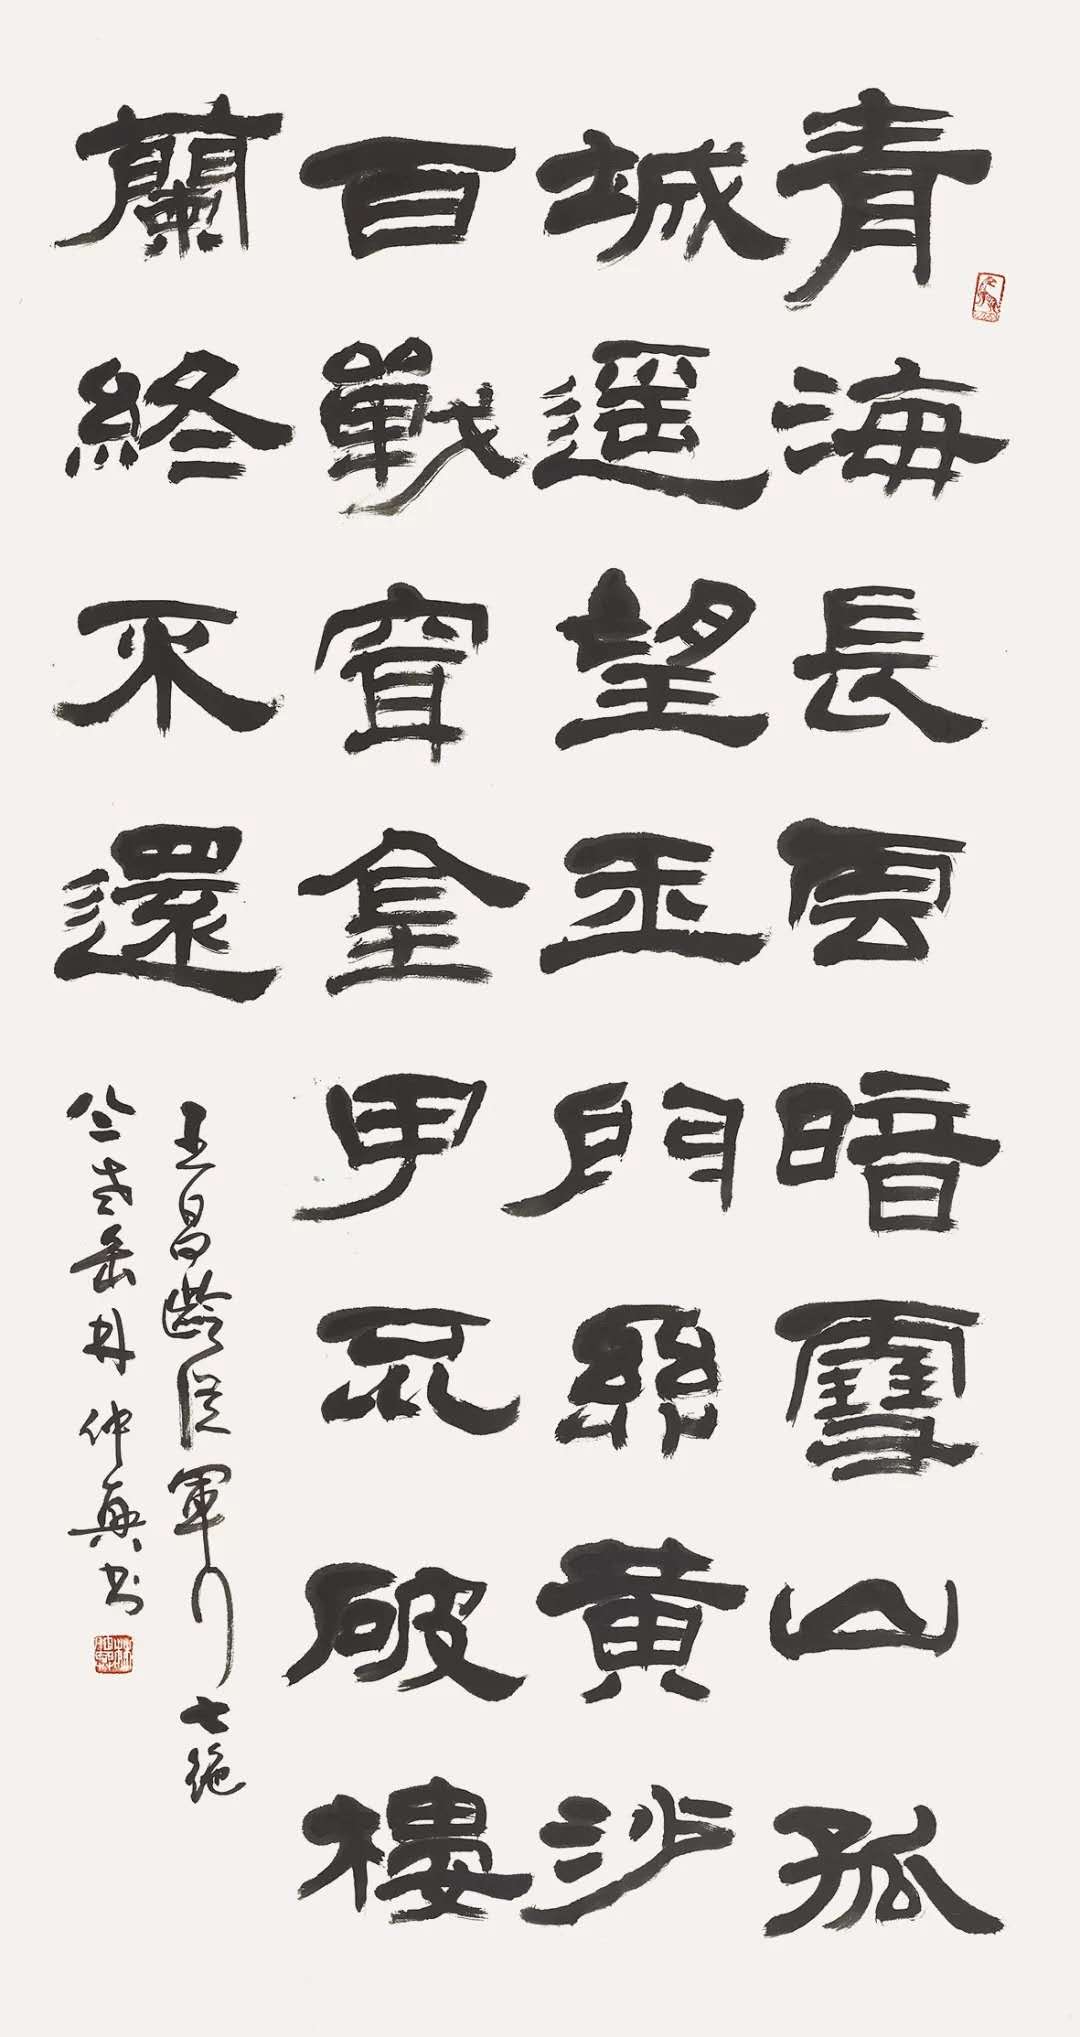 青海長雲暗雪山孤
城遥望玉門關黄沙
百戰穿金甲不破樓
蘭終不還
王昌齡從軍行七绝
林仲興书